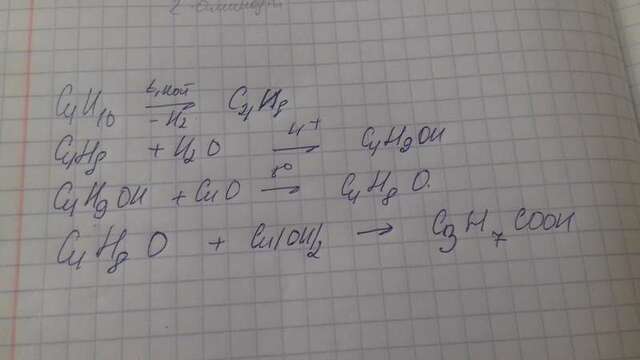 C4H10 t, кат → -H2 C4H8
C4H8 + H2O H+ → C4H9OH
C4H9OH + CuO t° → C4H8O.
C4H8O + Cu(OH)2 → C3H7COOH